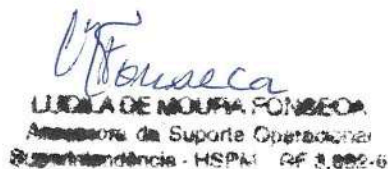 Fonseca
LUDILA DE MOURA FONSECA
Assessora de Suporte Operacional
Superintendência - HSPM RF